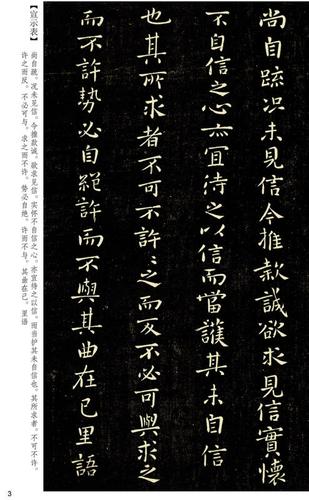 尚自疏況未見信今推款誠欲求見信實懷
不自信之心亦宜待之以信而當護其未自信
也其所求者不可不許之而反不必可與求之
而不許勢必自絕許而不與其曲在己里語
【宣示表】
尚自疏。况未见信。今推款诚。欲求见信。实怀不自信之心。亦宜待之以信。而当护其未自信也。其所求者。不可不许。
许之而反。不必可与。求之而不许。势必自绝。许而不与。其曲在己。里语
3